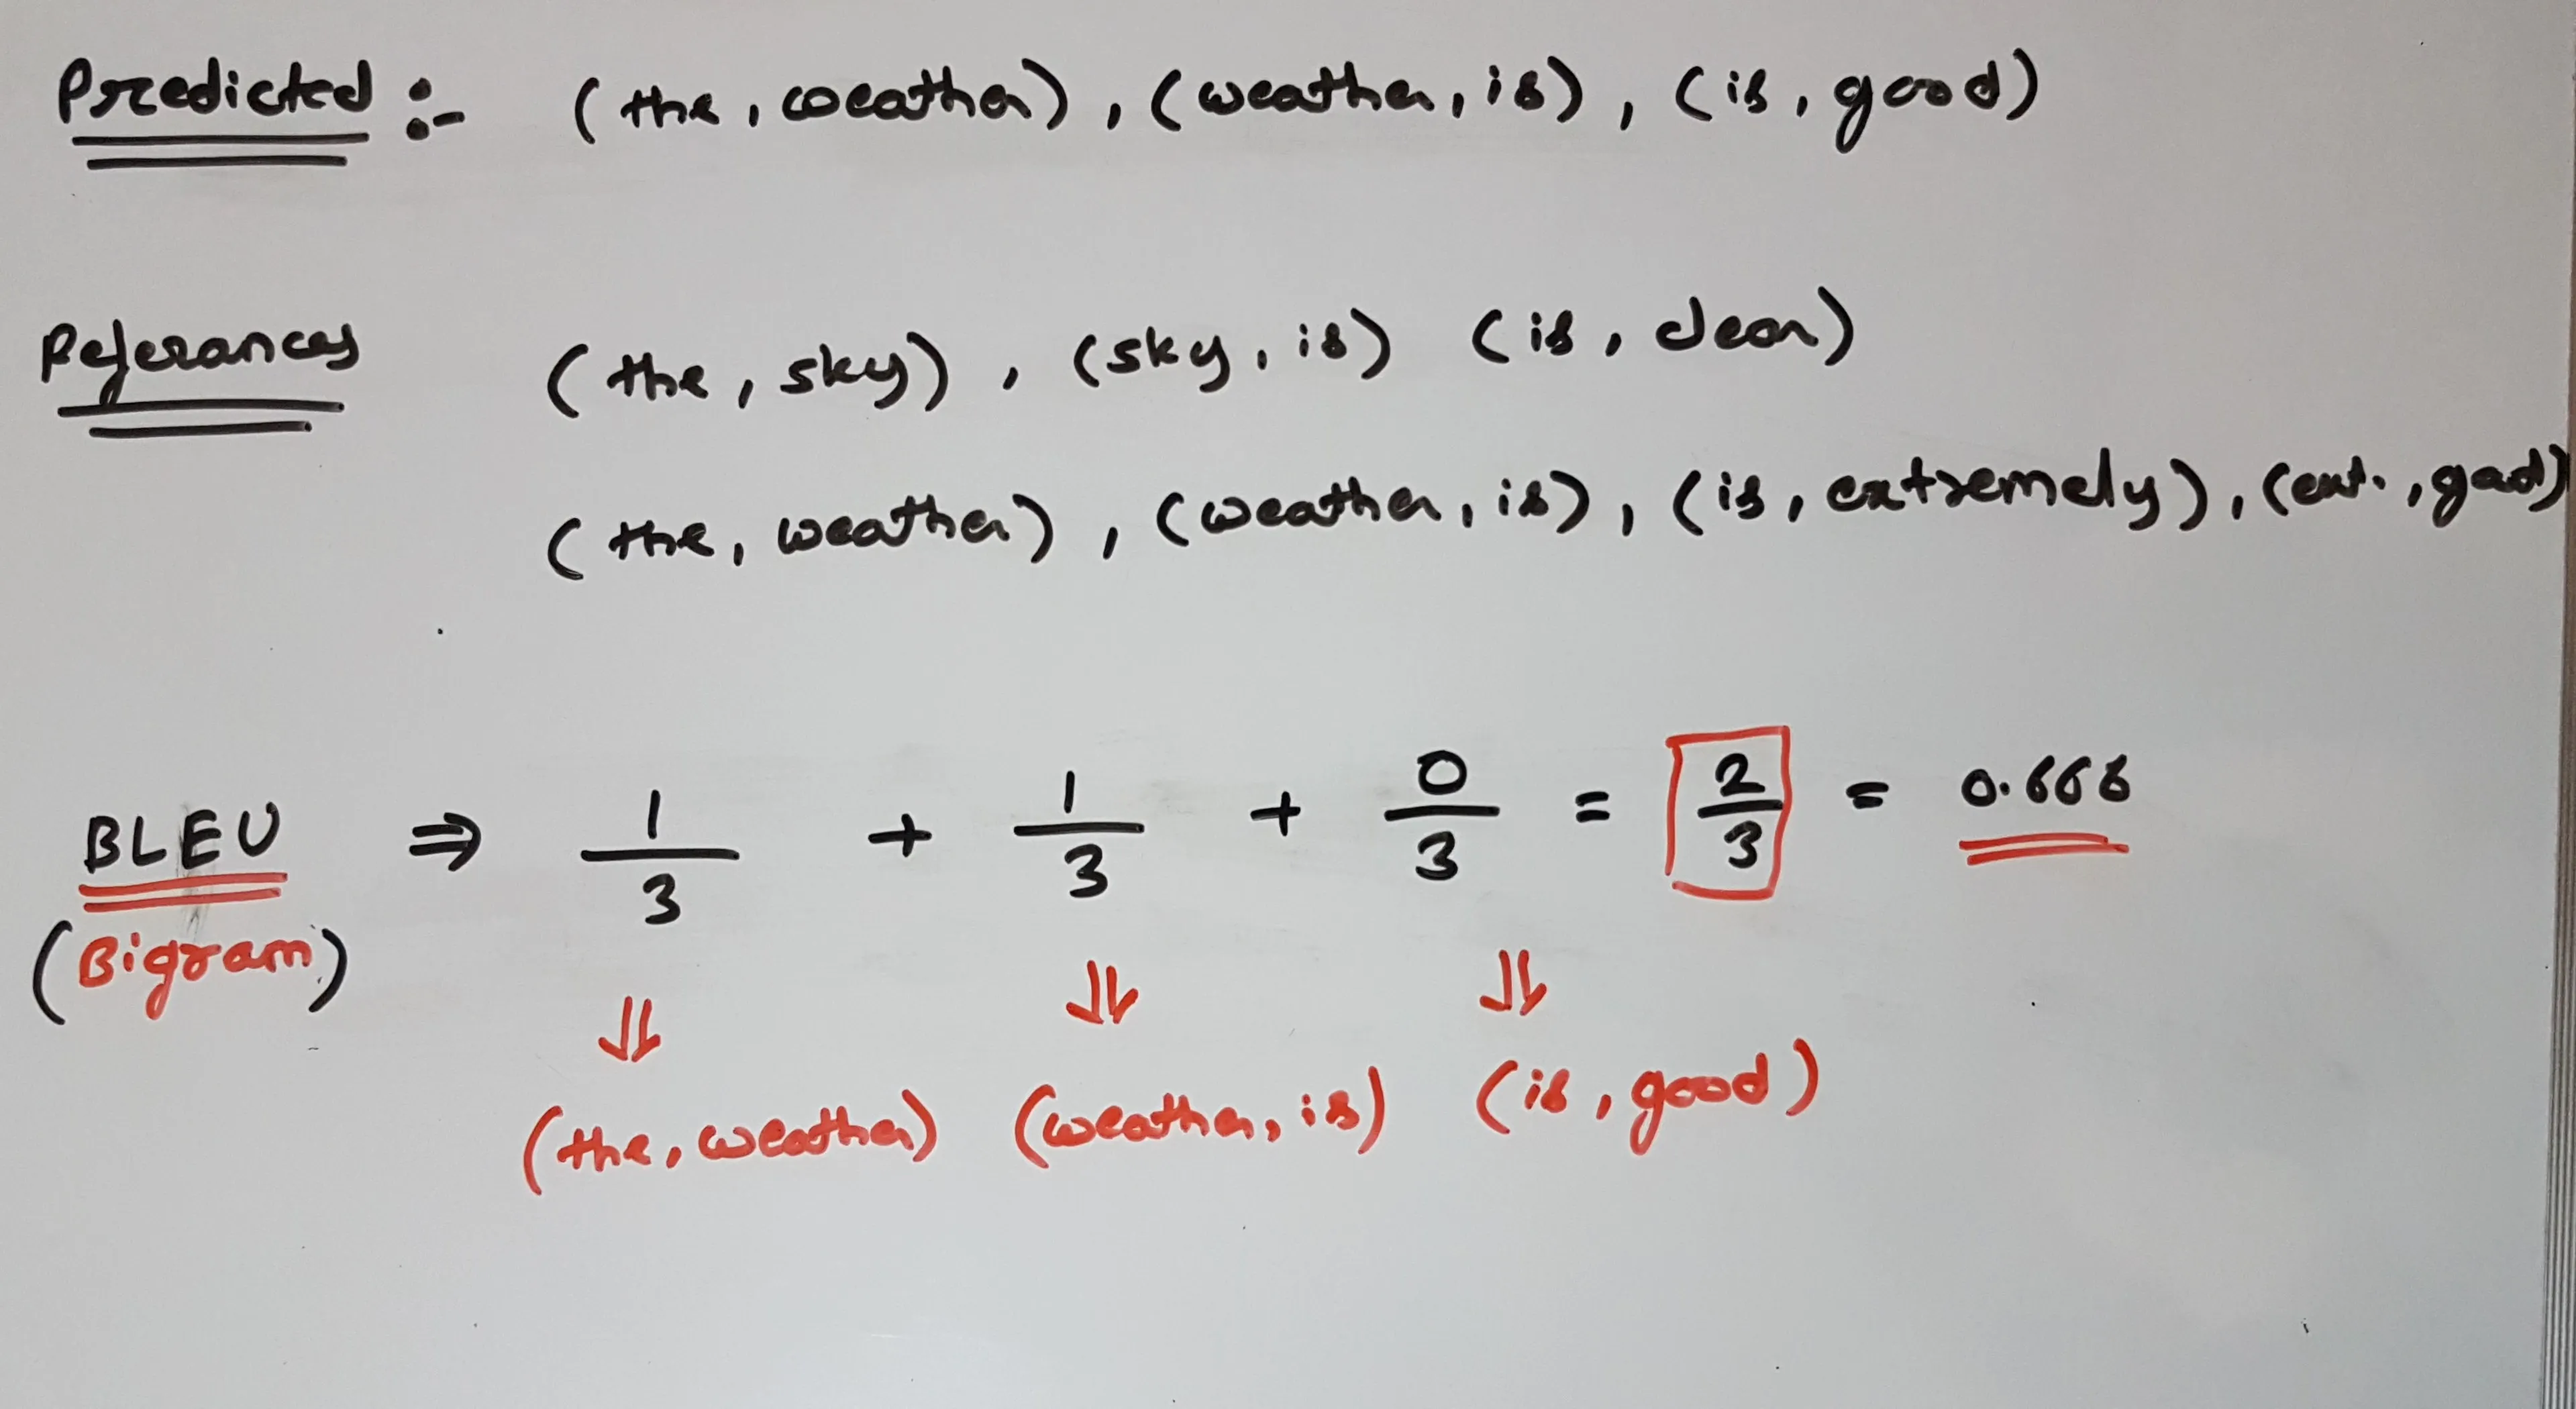 Predicted :- (the, weather), (weather, is), (is, good)
Referances (the, sky), (sky, is) (is, clear)
(the, weather), (weather, is), (is, extremely), (ext., good)
BLEU ⇒ 1/3 + 1/3 + 0/3 = 2/3 = 0.666
(Bigram)
(the, weather) (weather, is) (is, good)